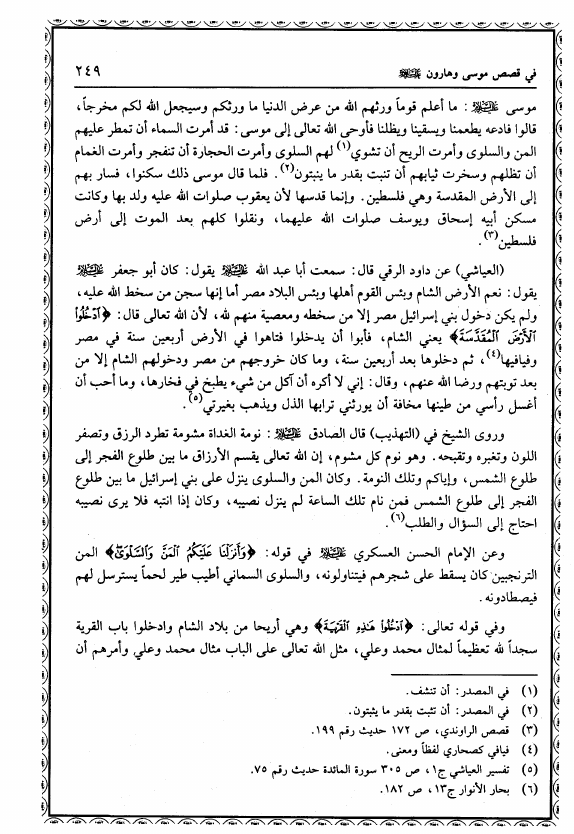 في قصص موسى وهارون ﷺ ٢٤٩
موسى ﷺ : ما أعلم قوماً ورثهم الله من عرض الدنيا ما ورثكم وسيجعل الله لكم مخرجاً،
قالوا فادعه يطعمنا ويسقينا ويظلنا فأوحى الله تعالى إلى موسى: قد أمرت السماء أن تمطر عليهم
المن والسلوى وأمرت الريح أن تشوي(١) لهم السلوى وأمرت الحجارة أن تنفجر وأمرت الغمام
أن تظلهم وسخرت ثيابهم أن تنبت بقدر ما ينبتون(٢). فلما قال موسى ذلك سكنوا، فسار بهم
إلى الأرض المقدسة وهي فلسطين. وإنما قدسها لأن يعقوب صلوات الله عليه ولد بها وكانت
مسكن أبيه إسحاق ويوسف صلوات الله عليهما، ونقلوا كلهم بعد الموت إلى أرض
فلسطين(٣).
(العياشي) عن داود الرقي قال: سمعت أبا عبد الله ﷺ يقول: كان أبو جعفر ﷺ
يقول: نعم الأرض الشام وبئس القوم أهلها وبئس البلاد مصر أما إنها سجن من سخط الله عليه،
ولم يكن دخول بني إسرائيل مصر إلا من سخطه ومعصية منهم لله، لأن الله تعالى قال: ﴿ٱدْخُلُوا۟
ٱلْأَرْضَ ٱلْمُقَدَّسَةَ﴾ يعني الشام، فأبوا أن يدخلوا فتاهوا في الأرض أربعين سنة في مصر
وفيافيها(٤)، ثم دخلوها بعد أربعين سنة، وما كان خروجهم من مصر ودخولهم الشام إلا من
بعد توبتهم ورضا الله عنهم، وقال: إني لا أكره أن آكل من شيء يطبخ في فخارها، وما أحب أن
أغسل رأسي من طينها مخافة أن يورثني ترابها الذل ويذهب بغيرتي(٥).
وروى الشيخ في (التهذيب) قال الصادق ﷺ : نومة الغداة مشومة تطرد الرزق وتصفر
اللون وتغبره وتقبحه. وهو نوم كل مشوم، إن الله تعالى يقسم الأرزاق ما بين طلوع الفجر إلى
طلوع الشمس، وإياكم وتلك النومة. وكان المن والسلوى ينزل على بني إسرائيل ما بين طلوع
الفجر إلى طلوع الشمس فمن نام تلك الساعة لم ينزل نصيبه، وكان إذا انتبه فلا يرى نصيبه
احتاج إلى السؤال والطلب(٦).
وعن الإمام الحسن العسكري ﷺ في قوله: ﴿وَأَنزَلْنَا عَلَيْكُمُ ٱلْمَنَّ وَٱلسَّلْوَىٰ﴾ المن
الترنجبين كان يسقط على شجرهم فيتناولونه، والسلوى السماني أطيب طير لحماً يسترسل لهم
فيصطادونه.
وفي قوله تعالى: ﴿ٱدْخُلُوا۟ هَٰذِهِ ٱلْقَرْيَةَ﴾ وهي أريحا من بلاد الشام وادخلوا باب القرية
سجداً لله تعظيماً لمثال محمد وعلي، مثل الله تعالى على الباب مثال محمد وعلي وأمرهم أن
(١) في المصدر: أن تنشف.
(٢) في المصدر: أن تثبت بقدر ما يثبتون.
(٣) قصص الراوندي، ص ١٧٢ حديث رقم ١٩٩.
(٤) فيافي كصحاري لفظاً ومعنى.
(٥) تفسير العياشي ج١، ص ٣٠٥ سورة المائدة حديث رقم ٧٥.
(٦) بحار الأنوار ج١٣، ص ١٨٢.